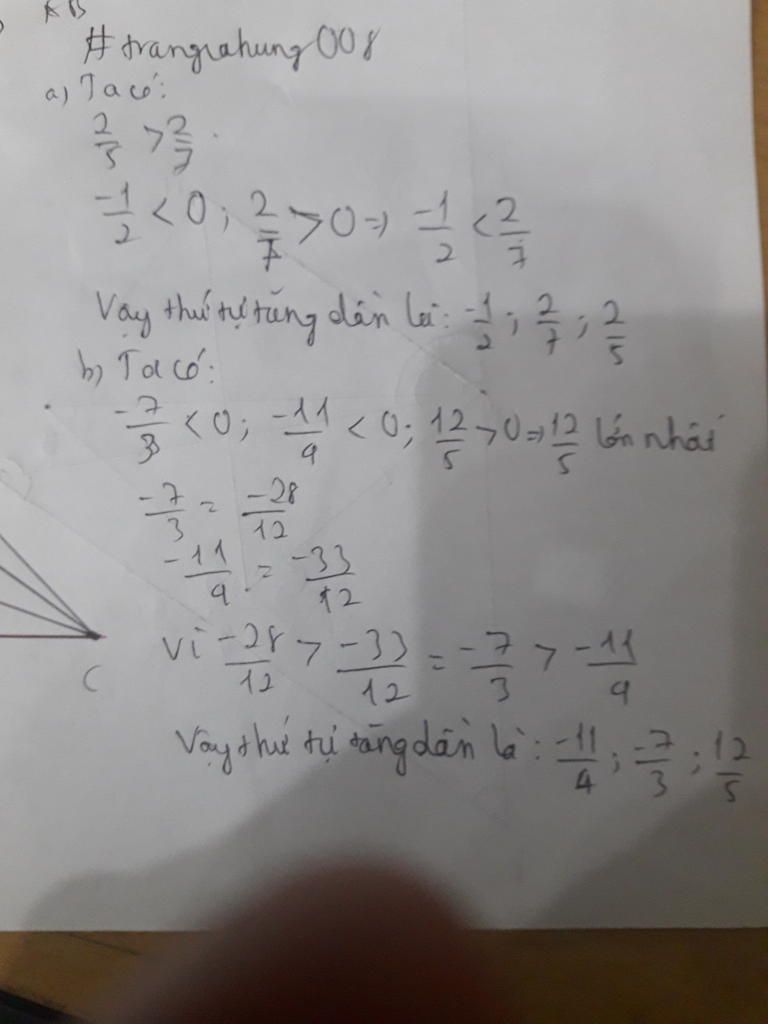 #trangiahung008
a) Ta có:
2/5 > 2/7.
-1/2 < 0; 2/7 > 0 => -1/2 < 2/7
Vậy thứ tự tăng dần là: -1/2; 2/7; 2/5
b) Ta có:
-7/3 < 0; -11/4 < 0; 12/5 > 0 => 12/5 lớn nhất
-7/3 = -28/12
-11/4 = -33/12
C
Vì -28/12 > -33/12 = -7/3 > -11/4
Vậy thứ tự tăng dần là: -11/4; -7/3; 12/5